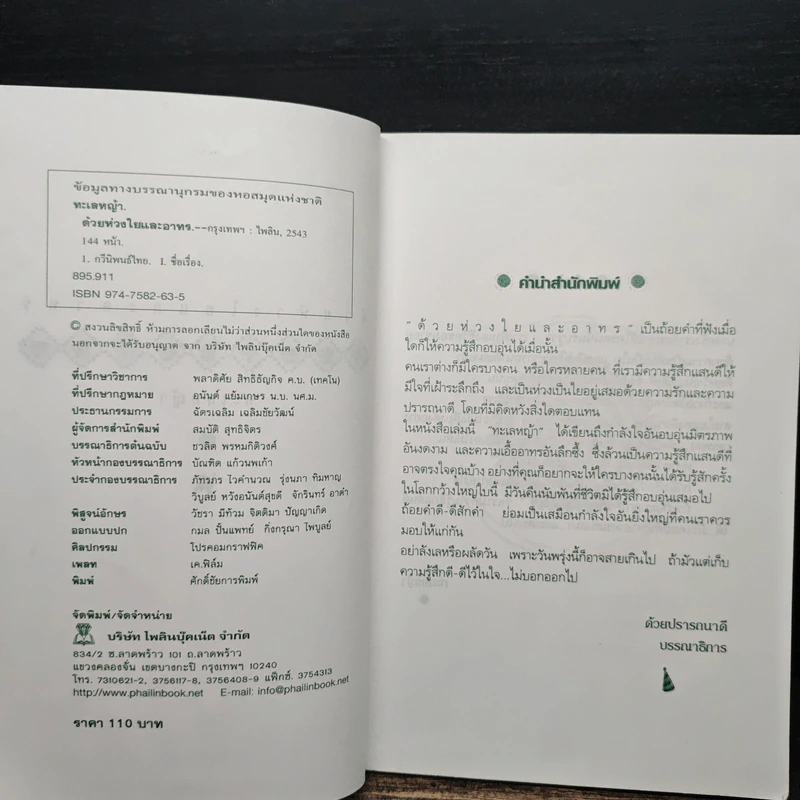 ข้อมูลทางบรรณานุกรมของหอสมุดแห่งชาติ
ทะเลหญ้า.
ด้วยห่วงใยและอาทร.--กรุงเทพฯ : ไพลิน, 2543
144 หน้า.
1. กวีนิพนธ์ไทย. I. ชื่อเรื่อง.
895.911
ISBN 974-7582-63-5
© สงวนลิขสิทธิ์ ห้ามการลอกเลียนไม่ว่าส่วนหนึ่งส่วนใดของหนังสือ
นอกจากจะได้รับอนุญาต จาก บริษัท ไพลินบุ๊คเน็ต จำกัด
ที่ปรึกษาวิชาการ พลาดิศัย สิทธิธัญกิจ ค.บ. (เทคโน)
ที่ปรึกษากฎหมาย อนันต์ แย้มเกษร น.บ. นศ.ม.
ประธานกรรมการ ฉัตรเฉลิม เฉลิมชัยวัฒน์
ผู้จัดการสำนักพิมพ์ สมบัติ สุทธิจิตร
บรรณาธิการต้นฉบับ ชวลิต พรหมกิติวงศ์
หัวหน้ากองบรรณาธิการ บัณฑิต แก้วนพเก้า
ประจำกองบรรณาธิการ ภัทรภร ไวคำนวณ รุ่งนภา ทิมหาญ
วิบูลย์ หวังอนันต์สุขดี จักรินทร์ อาดำ
พิสูจน์อักษร วัชรา มีทิวม จิตติมา ปัญญาเกิด
ออกแบบปก กมล ปั้นแพทย์ กิ่งกรุณา ไพบูลย์
ศิลปกรรม โปรคอมกราฟฟิค
เพลท เค.ฟิล์ม
พิมพ์ ศักดิ์ชัยการพิมพ์
จัดพิมพ์/จัดจำหน่าย
บริษัท ไพลินบุ๊คเน็ต จำกัด
834/2 ซ.ลาดพร้าว 101 ถ.ลาดพร้าว
แขวงคลองจั่น เขตบางกะปิ กรุงเทพฯ 10240
โทร. 7310621-2, 3756117-8, 3756408-9 แฟ็กซ์. 3754313
http://www.phailinbook.net E-mail: info@phailinbook.net
ราคา 110 บาท
คำนำสำนักพิมพ์
" ด้วยห่วงใยและอาทร " เป็นถ้อยคำที่ฟังเมื่อ
ใดก็ให้ความรู้สึกอบอุ่นได้เมื่อนั้น
คนเราต่างก็มีใครบางคน หรือใครหลายคน ที่เรามีความรู้สึกแสนดีให้
มีใจที่เฝ้าระลึกถึง และเป็นห่วงเป็นใยอยู่เสมอด้วยความรักและความ
ปรารถนาดี โดยที่มิคิดหวังสิ่งใดตอบแทน
ในหนังสือเล่มนี้ "ทะเลหญ้า" ได้เขียนถึงกำลังใจอันอบอุ่นมิตรภาพ
อันงดงาม และความเอื้ออาทรอันลึกซึ้ง ซึ่งล้วนเป็นความรู้สึกแสนดีที่
อาจตรงใจคุณบ้าง อย่างที่คุณก็อยากจะให้ใครบางคนนั้นได้รับรู้สักครั้ง
ในโลกกว้างใหญ่ใบนี้ มีวันคืนนับพันที่ชีวิตมิได้รู้สึกอบอุ่นเสมอไป
ถ้อยคำดี-ดีสักคำ ย่อมเป็นเสมือนกำลังใจอันยิ่งใหญ่ที่คนเราควร
มอบให้แก่กัน
อย่าลังเลหรือผลัดวัน เพราะวันพรุ่งนี้ก็อาจสายเกินไป ถ้ามัวแต่เก็บ
ความรู้สึกดี-ดีไว้ในใจ...ไม่บอกออกไป
ด้วยปรารถนาดี
บรรณาธิการ